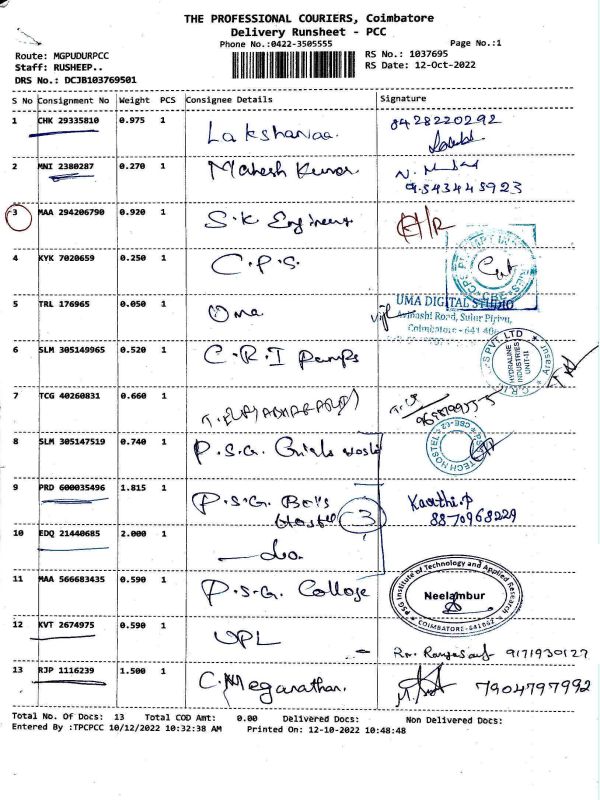 THE PROFESSIONAL COURIERS, Coimbatore
Delivery Runsheet - PCC
Phone No.:0422-3505555 Page No.:1
Route: MGPUDURPCC RS No.: 1037695
Staff: RUSHEEP.. RS Date: 12-Oct-2022
DRS No.: DCJB103769501
S No Consignment No Weight PCS Consignee Details Signature
1 CHK 29335810 0.975 1 Lakshanaa. 8428220292
2 MNI 2380287 0.270 1 Mahesh Kumar
9543445923
3 MAA 294206790 0.920 1 S.K Engineers
4 KYK 7020659 0.250 1 C.P.S.
5 TRL 176965 0.050 1 Oma
UMA DIGITAL STUDIO
Avinashi Road, Sulur
Coimbatore - 641
6 SLM 305149965 0.520 1 C.R.I Pumps
HYDRAULINE INDUSTRIES UNIT-II
7 TCG 40260831 0.660 1
8 SLM 305147519 0.740 1 P.S.G. Girls Hostel
TECH HOSTEL
9 PRD 600035496 1.815 1 P.S.G. Boys Hostel 3 Kaarthi.P
8870968229
10 EDQ 21440685 2.000 1 do.
11 MAA 566683435 0.590 1 P.S.G. College
PSG Institute of Technology and Applied Research
Neelambur
COIMBATORE-641062
12 KVT 2674975 0.590 1 UPL 9171930127
13 RJP 1116239 1.500 1 C. Meganathan. 7904797992
Total No. Of Docs: 13 Total COD Amt: 0.00 Delivered Docs: Non Delivered Docs:
Entered By :TPCPCC 10/12/2022 10:32:38 AM Printed On: 12-10-2022 10:48:48